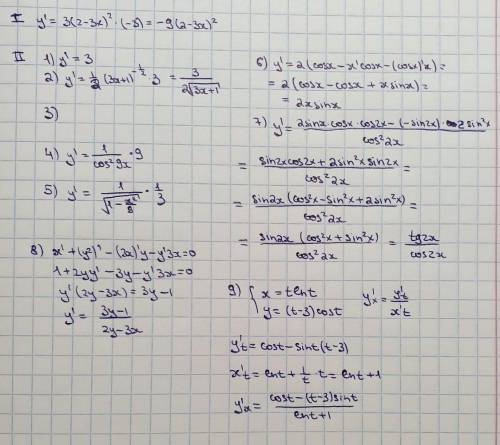 I y' = 3(2-3x)² · (-3) = -9(2-3x)²
II
1) y' = 3
2) y' = 1/2 (3x+1)^(-1/2) · 3 = 3/(2√(3x+1))
3)
4) y' = 1/(cos²9x) · 9
5) y' = 1/√(1-x²/9) · 1/3
6) y' = 2(cosx - x'cosx - (cosx)'x) =
= 2(cosx - cosx + xsinx) =
= 2xsinx
7) y' = (2sinx·cosx·cos2x - (-sin2x)·2sin²x)/(cos²2x)
= (sin2xcos2x + 2sin²xsin2x)/(cos²2x) =
= (sin2x(cos²x - sin²x + 2sin²x))/(cos²2x) =
= (sin2x (cos²x + sin²x))/(cos²2x) = tg2x/cos2x
8) x' + (y²)' - (3x)'y - y'3x = 0
1 + 2yy' - 3y - y'3x = 0
y'(2y-3x) = 3y-1
y' = (3y-1)/(2y-3x)
9) { x = tlnt
y = (t-3)cost
y'x = y't/x't
y't = cost - sint(t-3)
x't = lnt + 1/t · t = lnt + 1
y'x = (cost - (t-3)sint)/(lnt+1)